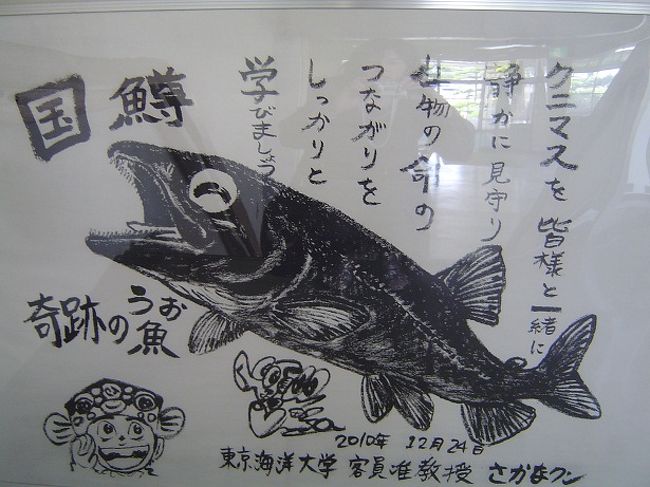 国鱒
クニマスを皆様と一緒に
静かに見守り
生物の命の
つながりを
しっかりと
学びましょう
奇跡のうお魚
2010年 12月24日
東京海洋大学 客員准教授 さかなクン